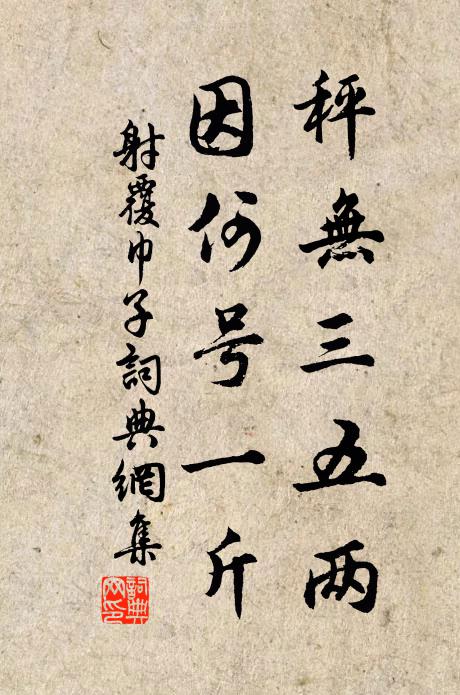 秤無三五两
因何号一斤
射覆巾子詞典網集
詞典
网印